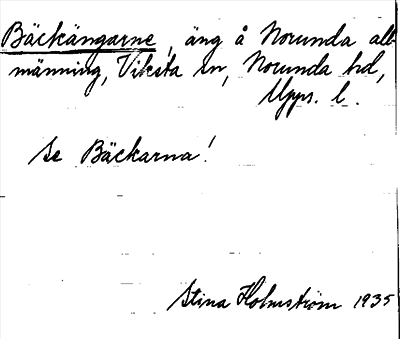 Bäckängarne, äng å Norunda all-
männing, Viksta sn, Norunda hd,
Upps. l.
Se Bäckarna!
Stina Holmström 1935